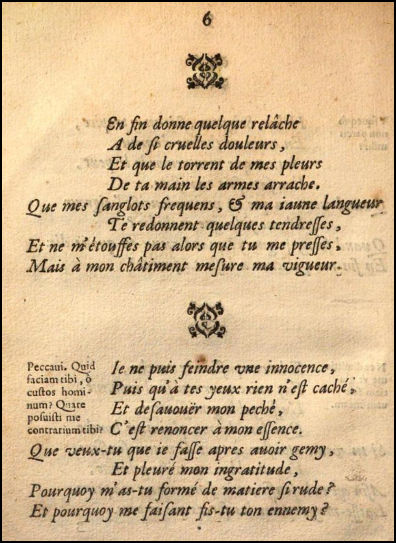 6
En fin donne quelque relâche
A de ſi cruelles douleurs,
Et que le torrent de mes pleurs
De ta main les armes arrache.
Que mes ſanglots frequens, & ma iaune langueur
Te redonnent quelques tendreſſes,
Et ne m'étouffes pas alors que tu me preſſes,
Mais à mon châtiment meſure ma vigueur.
Peccaui. Quid
faciam tibi, ô
custos homi-
num? Quare
posuisti me
contrarium tibi?
Ie ne puis feindre vne innocence,
Puis qu'à tes yeux rien n'eſt caché,
Et deſauoüer mon peché,
C'eſt renoncer à mon eſſence.
Que veux-tu que ie faſſe apres auoir gemy,
Et pleuré mon ingratitude,
Pourquoy m'as-tu formé de matiere ſi rude?
Et pourquoy me faiſant fis-tu ton ennemy?